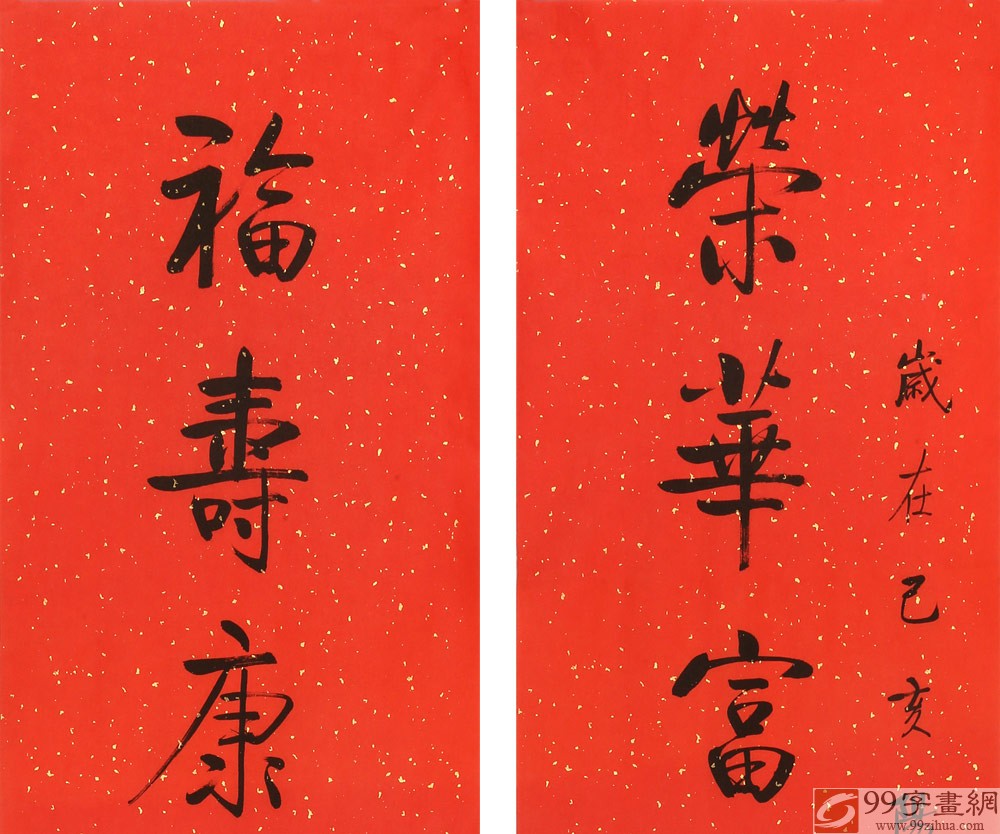 歲在己亥
榮華富
福壽康
99字畫網
www.99zihua.com